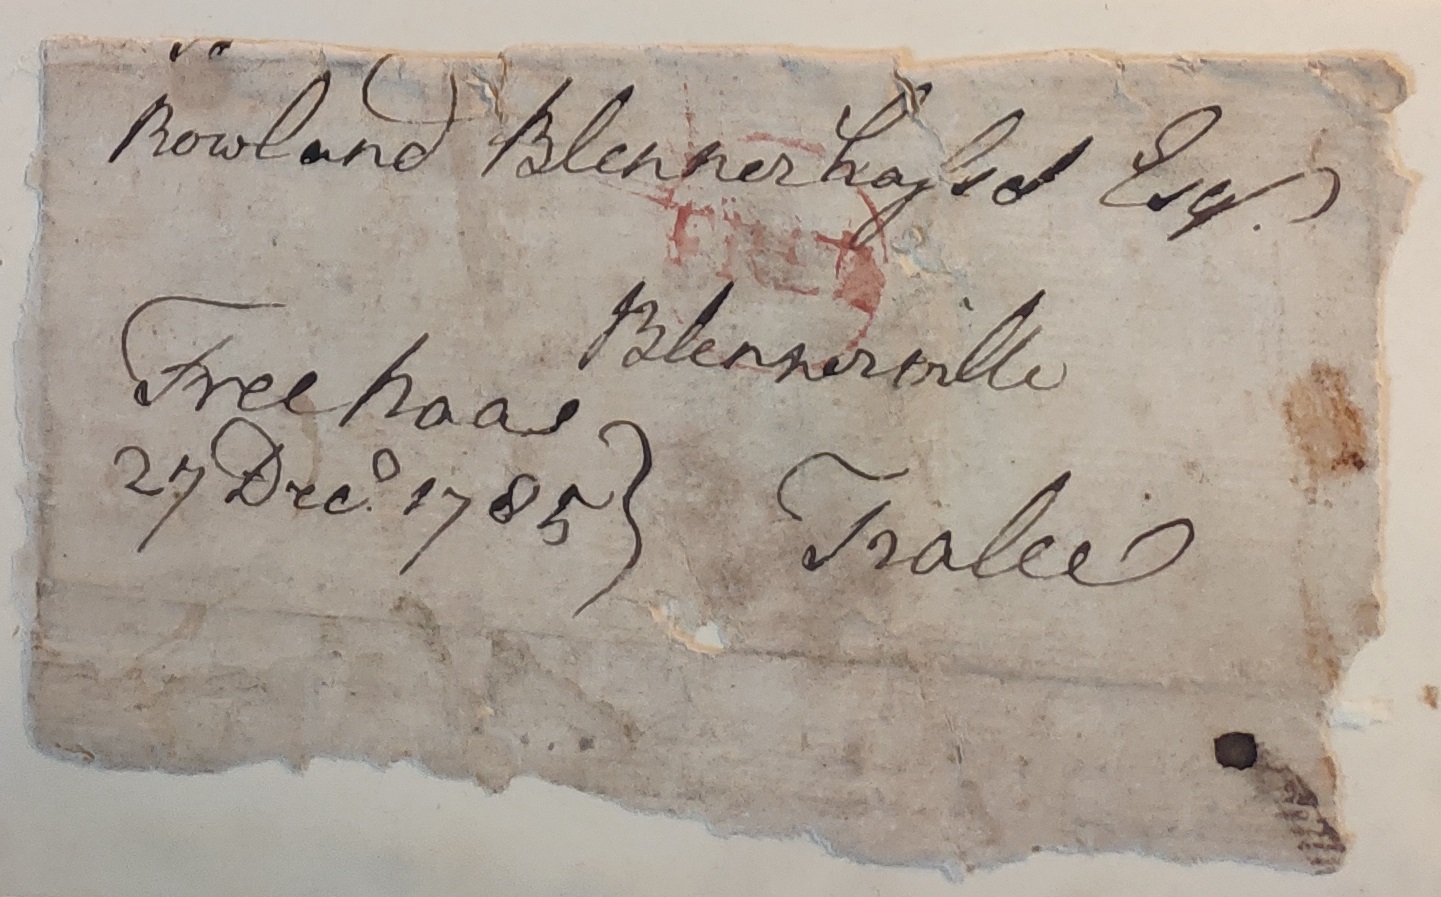 Rowland Blennerhaſset Esqr.
Blennerville
Free haas
27 Decr. 1785
Tralee